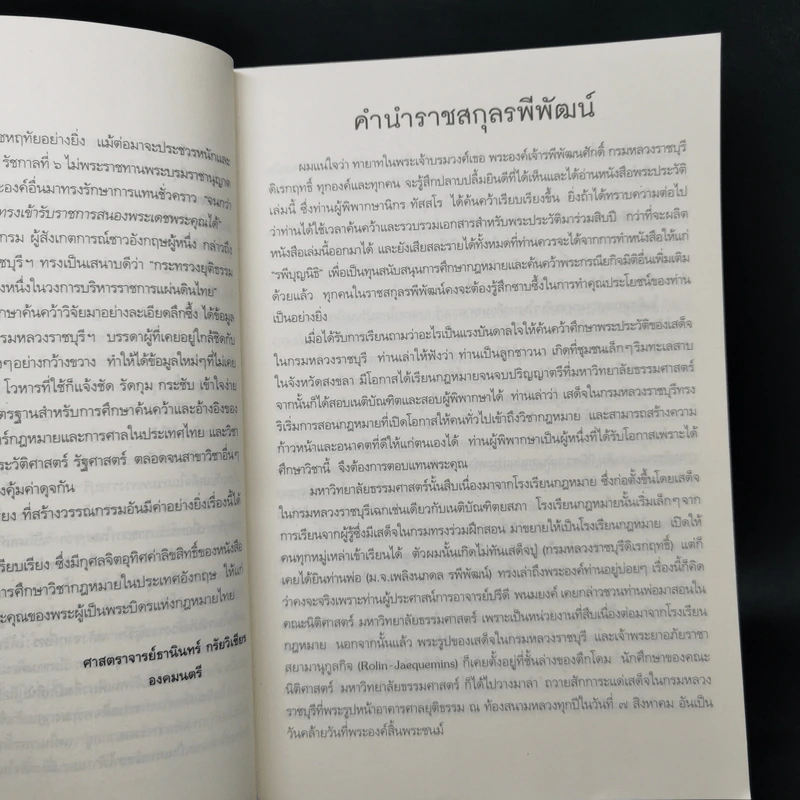 ชหฤทัยอย่างยิ่ง แม้ต่อมาจะประชวรหนักและ
รัชกาลที่ ๖ ไม่พระราชทานพระบรมราชานุญาต
ะองค์อื่นมาทรงรักษาการแทนชั่วคราว "จนกว่า
ทรงเข้ารับราชการสนองพระเดชพระคุณได้"
กรม ผู้สังเกตการณ์ชาวอังกฤษผู้หนึ่ง กล่าวถึง
ชบุรีฯ ทรงเป็นเสนาบดีว่า "กระทรวงยุติธรรม
งหนึ่งในวงการบริหารราชการแผ่นดินไทย"
ึกษาค้นคว้าวิจัยมาอย่างละเอียดลึกซึ้ง ได้ข้อมูล
รมหลวงราชบุรีฯ บรรดาผู้ที่เคยอยู่ใกล้ชิดกับ
งๆอย่างกว้างขวาง ทำให้ได้ข้อมูลใหม่ๆที่ไม่เคย
โวหารที่ใช้ก็แจ้งชัด รัดกุม กระชับ เข้าใจง่าย
ตรฐานสำหรับการศึกษาค้นคว้าและอ้างอิงของ
ร์กฎหมายและการศาลในประเทศไทย และวิชา
ะวัติศาสตร์ รัฐศาสตร์ ตลอดจนสาขาวิชาอื่นๆ
งคุ้มค่าดุจกัน
ียง ที่สร้างวรรณกรรมอันมีค่าอย่างยิ่งเรื่องนี้ได้
รียบเรียง ซึ่งมีกุศลจิตอุทิศค่าลิขสิทธิ์ของหนังสือ
การศึกษาวิชากฎหมายในประเทศอังกฤษ ให้แก่
ะคุณของพระผู้เป็นพระบิดาแห่งกฎหมายไทย
ศาสตราจารย์ธานินทร์ กรัยวิเชียร
องคมนตรี
คำนำราชสกุลรพีพัฒน์
ผมแน่ใจว่า ทายาทในพระเจ้าบรมวงศ์เธอ พระองค์เจ้ารพีพัฒนศักดิ์ กรมหลวงราชบุรี
ดิเรกฤทธิ์ ทุกองค์และทุกคน จะรู้สึกปลาบปลื้มยินดีที่ได้เห็นและได้อ่านหนังสือพระประวัติ
เล่มนี้ ซึ่งท่านผู้พิพากษานิกร ทัสสโร ได้ค้นคว้าเรียบเรียงขึ้น ยิ่งถ้าได้ทราบความต่อไป
ว่าท่านได้ใช้เวลาค้นคว้าและรวบรวมเอกสารสำหรับพระประวัติมาร่วมสิบปี กว่าที่จะผลิต
หนังสือเล่มนี้ออกมาได้ และยังเสียสละรายได้ทั้งหมดที่ท่านควรจะได้จากการทำหนังสือให้แก่
"รพีบุญนิธิ" เพื่อเป็นทุนสนับสนุนการศึกษากฎหมายและค้นคว้าพระกรณียกิจมิติอื่นเพิ่มเติม
ด้วยแล้ว ทุกคนในราชสกุลรพีพัฒน์คงจะต้องรู้สึกซาบซึ้งในการทำคุณประโยชน์ของท่าน
เป็นอย่างยิ่ง
เมื่อได้รับการเรียนถามว่าอะไรเป็นแรงบันดาลใจให้ค้นคว้าศึกษาพระประวัติของเสด็จ
ในกรมหลวงราชบุรี ท่านเล่าให้ฟังว่า ท่านเป็นลูกชาวนา เกิดที่ชุมชนเล็กๆริมทะเลสาบ
ในจังหวัดสงขลา มีโอกาสได้เรียนกฎหมายจนจบปริญญาตรีที่มหาวิทยาลัยธรรมศาสตร์
จากนั้นก็ได้สอบเนติบัณฑิตและสอบผู้พิพากษาได้ ท่านเล่าว่า เสด็จในกรมหลวงราชบุรีทรง
ริเริ่มการสอนกฎหมายที่เปิดโอกาสให้คนทั่วไปเข้าถึงวิชากฎหมาย และสามารถสร้างความ
ก้าวหน้าและอนาคตที่ดีให้แก่ตนเองได้ ท่านผู้พิพากษาเป็นผู้หนึ่งที่ได้รับโอกาสเพราะได้
ศึกษาวิชานี้ จึงต้องการตอบแทนพระคุณ
มหาวิทยาลัยธรรมศาสตร์นั้นสืบเนื่องมาจากโรงเรียนกฎหมาย ซึ่งก่อตั้งขึ้นโดยเสด็จ
ในกรมหลวงราชบุรีเฉกเช่นเดียวกับเนติบัณฑิตยสภา โรงเรียนกฎหมายนั้นเริ่มเล็กๆจาก
การเรียนจากผู้รู้ซึ่งมีเสด็จในกรมทรงร่วมฝึกสอน มาขยายให้เป็นโรงเรียนกฎหมาย เปิดให้
คนทุกหมู่เหล่าเข้าเรียนได้ ตัวผมนั้นเกิดไม่ทันเสด็จปู่ (กรมหลวงราชบุรีดิเรกฤทธิ์) แต่ก็
เคยได้ยินท่านพ่อ (ม.จ.เพลิงนภดล รพีพัฒน์) ทรงเล่าถึงพระองค์ท่านอยู่บ่อยๆ เรื่องนี้ก็คิด
ว่าคงจะจริงเพราะท่านผู้ประศาสน์การอาจารย์ปรีดี พนมยงค์ เคยกล่าวชวนท่านพ่อมาสอนใน
คณะนิติศาสตร์ มหาวิทยาลัยธรรมศาสตร์ เพราะเป็นหน่วยงานที่สืบเนื่องต่อมาจากโรงเรียน
กฎหมาย นอกจากนั้นแล้ว พระรูปของเสด็จในกรมหลวงราชบุรี และเจ้าพระยาอภัยราชา
สยามานุกูลกิจ (Rolin-Jaequemins) ก็เคยตั้งอยู่ที่ชั้นล่างของตึกโดม นักศึกษาของคณะ
นิติศาสตร์ มหาวิทยาลัยธรรมศาสตร์ ก็ได้ไปวางมาลา ถวายสักการะแด่เสด็จในกรมหลวง
ราชบุรีที่พระรูปหน้าอาคารศาลยุติธรรม ณ ท้องสนามหลวงทุกปีในวันที่ ๗ สิงหาคม อันเป็น
วันคล้ายวันที่พระองค์สิ้นพระชนม์